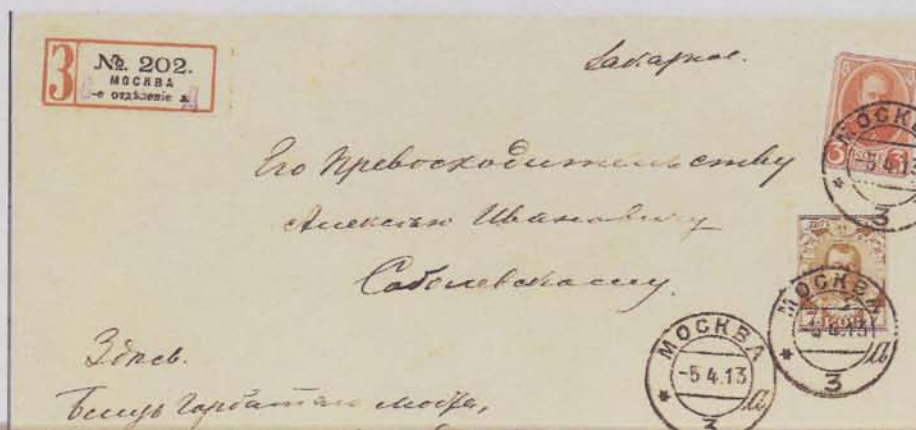 З № 202.
МОСКВА
-е отдѣленіе
Заказное.
Его Превосходительству
Алексѣю Ивановичу
Соболевскому.
Здѣсь.
Близь Горбатаго моста,
МОСКВА
-5 4.13
3
3
МОСКВА
-5 4.13
3
7 КОП 7
МОСКВА
-5 4.13
3